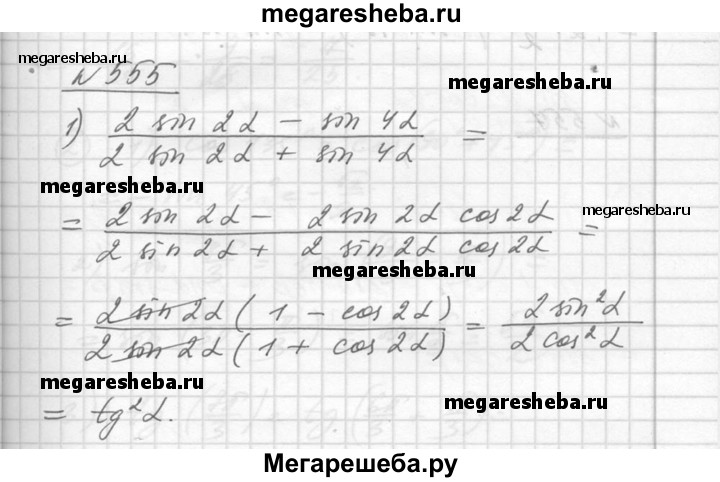 megaresheba.ru
№ 555
megaresheba.ru
megaresheba.ru
1) (2 sin 2α − sin 4α)/(2 sin 2α + sin 4α) =
megaresheba.ru
= (2 sin 2α − 2 sin 2α cos 2α)/(2 sin 2α + 2 sin 2α cos 2α) =
megaresheba.ru
megaresheba.ru
= (2 sin 2α (1 − cos 2α))/(2 sin 2α (1 + cos 2α)) = (2 sin²α)/(2 cos²α)
megaresheba.ru
= tg²α.
megaresheba.ru
Мегарешеба.ру